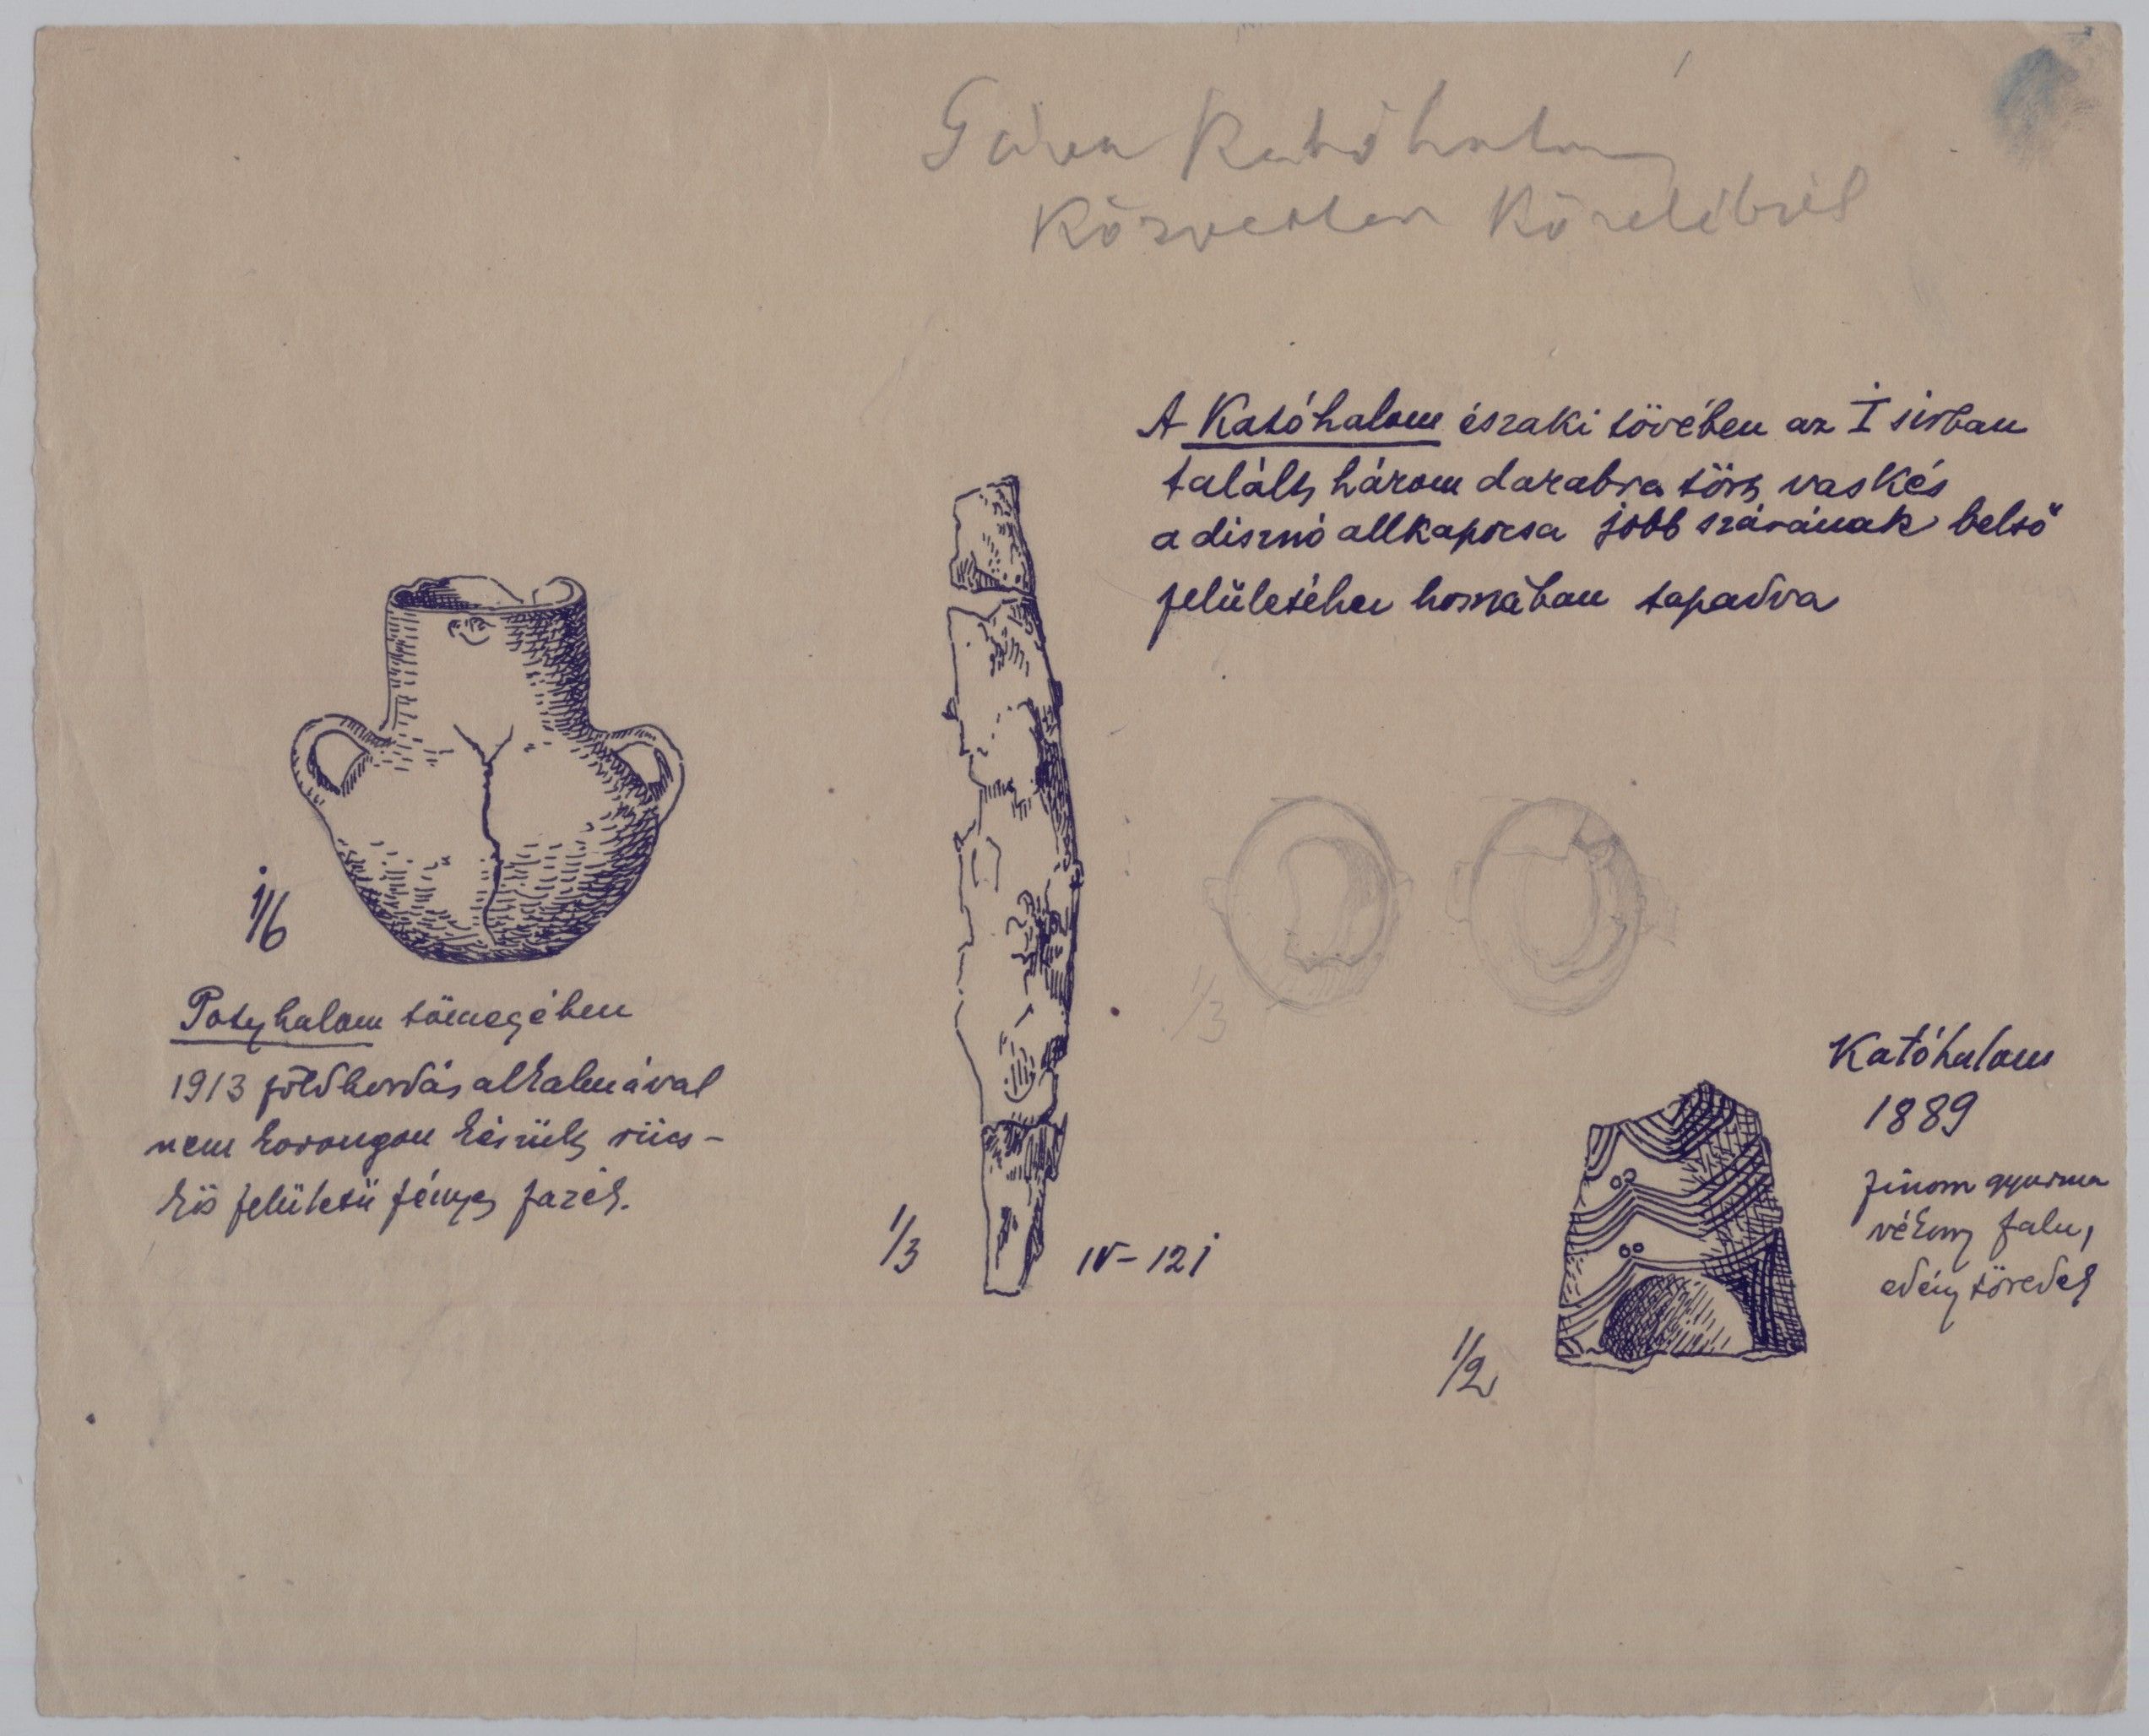 Gáva Katóhalom
Közvetlen Közeléből
A Katóhalom északi tövében az I sirban
talált, három darabra tört vaskés
a disznó allkapocsa jobb szárának belső
felületéhez hozzátapadva
1/6
Potyhalom tömegében
1913 földhordás alkalmával
nem korongon készült rücs-
kös felületü fényes fazék.
1/3
1/3
IV-121
Katóhalom
1889
finom gyurma
vékony falu,
edény töredék
1/2